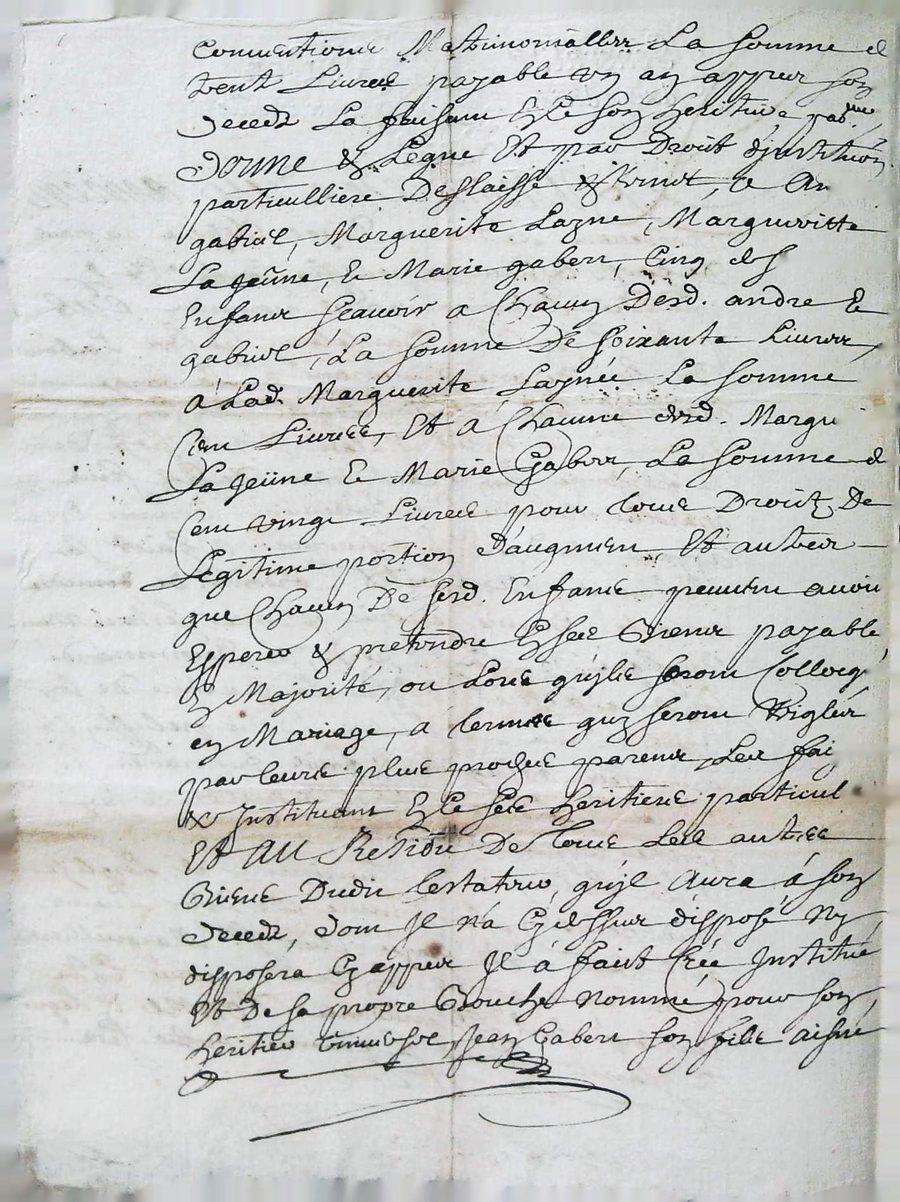 Conventions Matrimonialles La somme d
trent Livres payable un an appres son
deceds La faisant En Ce son heritiere par.re
donne & Legue Et par Droit d'jnstitution
particulliere Deslaissé & Remet, a An
gabriel, Marguerite Laznée, Margueritte
La jeûne, & Marie gabert, Cinq des
Enfans scavoir a Chacun Desd. andre &
gabriel, La somme De soixante Livres,
à Lad. Marguerite Laznée La somme
Cent Livres, Et a Chacune desd. Margu
La jeüne & Marie Gabert, La somme d
Cent vingt Livres pour tous Droitz De
Legitime portion d'augment, Et autres
que Chacun De sesd. Enfans peuvent avoir
Esperer & pretendre En ses Biens payable
En Majorité, ou Lors qu'jls seront Colloqé
en Mariage, a termes quy seront Reiglés
par leurs plus proches parens, Les fai
& Jnstituant En Ce ses heritiers particul
Et AU Residu De tous Les autres
Biens Dudit testateur, qu'jl aura à son
deceds, dont Jl n'a Cy dessus disposé Ny
disposera Cy appres Jl à fait Créé Jnstitué
Et De sa propre Bouche Nommé pour son
heritier Universel Jean Gabert son fils aisné